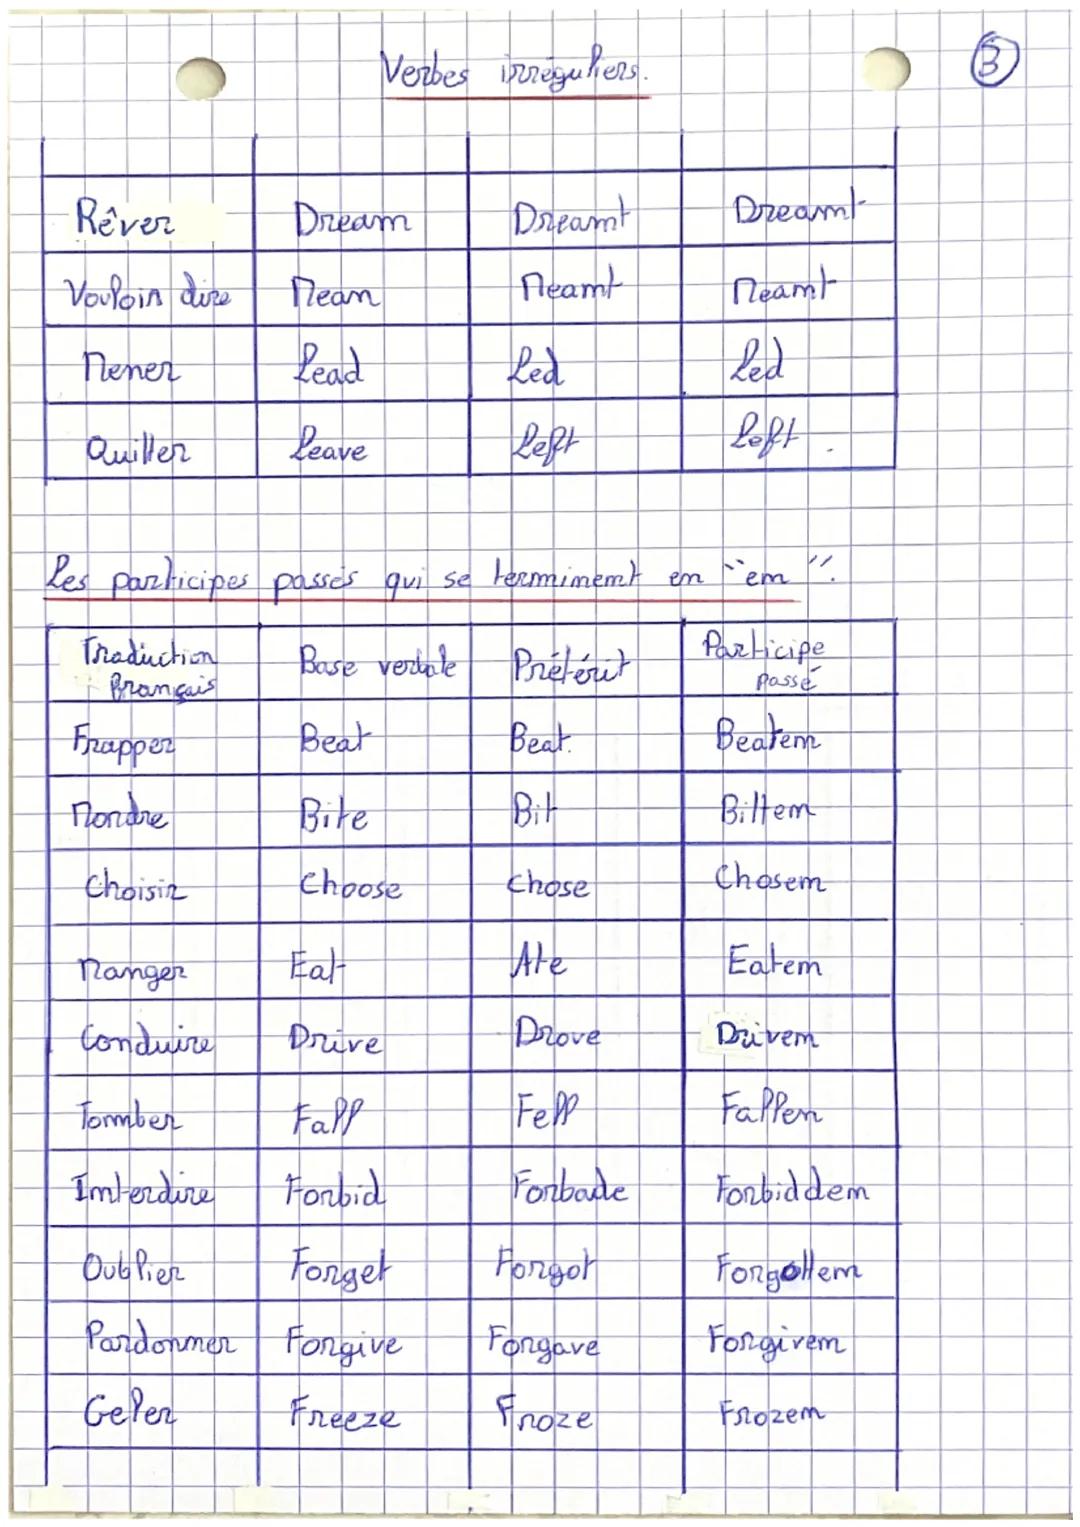 Verbes irréguliers.
3
Rêver Dream Dreamt Dreamt
Vouloir dire Mean Meant Meant
Mener Lead Led Led
Quitter Leave Left Left
Les participes passés qui se terminent en "en".
Traduction français Base verbale Prétérit Participe passé
Frapper Beat Beat Beaten
Mordre Bite Bit Bitten
Choisir Choose Chose Chosen
Manger Eat Ate Eaten
Conduire Drive Drove Driven
Tomber Fall Fell Fallen
Interdire Forbid Forbade Forbidden
Oublier Forget Forgot Forgotten
Pardonner Forgive Forgave Forgiven
Geler Freeze Froze Frozen